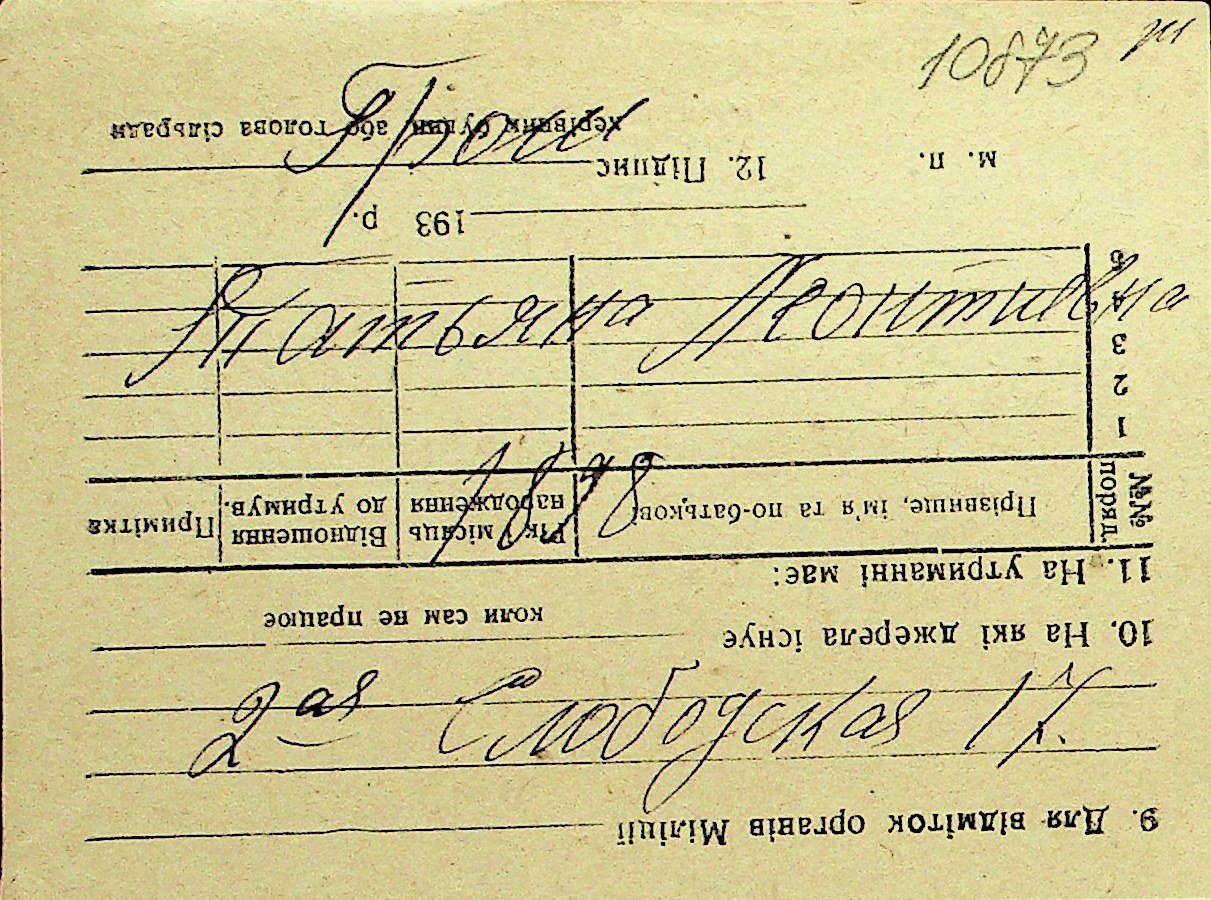 10873
Грош
Татьяна Леонтиевна
1878
2ая Слободская 17.
9. Для відміток органів Міліції
10. На які джерела існує
коли сам не працює
11. На утриманні має:
№№ поряд.
Прізвище, ім'я та по-батькові
Рік і місяць народження
Відношення до утримув.
Примітка
1
2
3
4
5
193 р.
м. п.
12. Підпис
керівник будин. або голова сільради